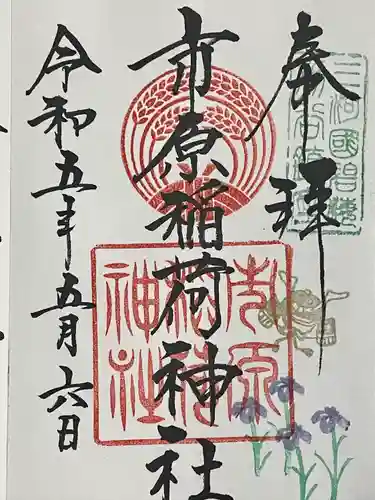 奉拝
市原稲荷神社
令和五年五月六日
市原
稲荷
神社